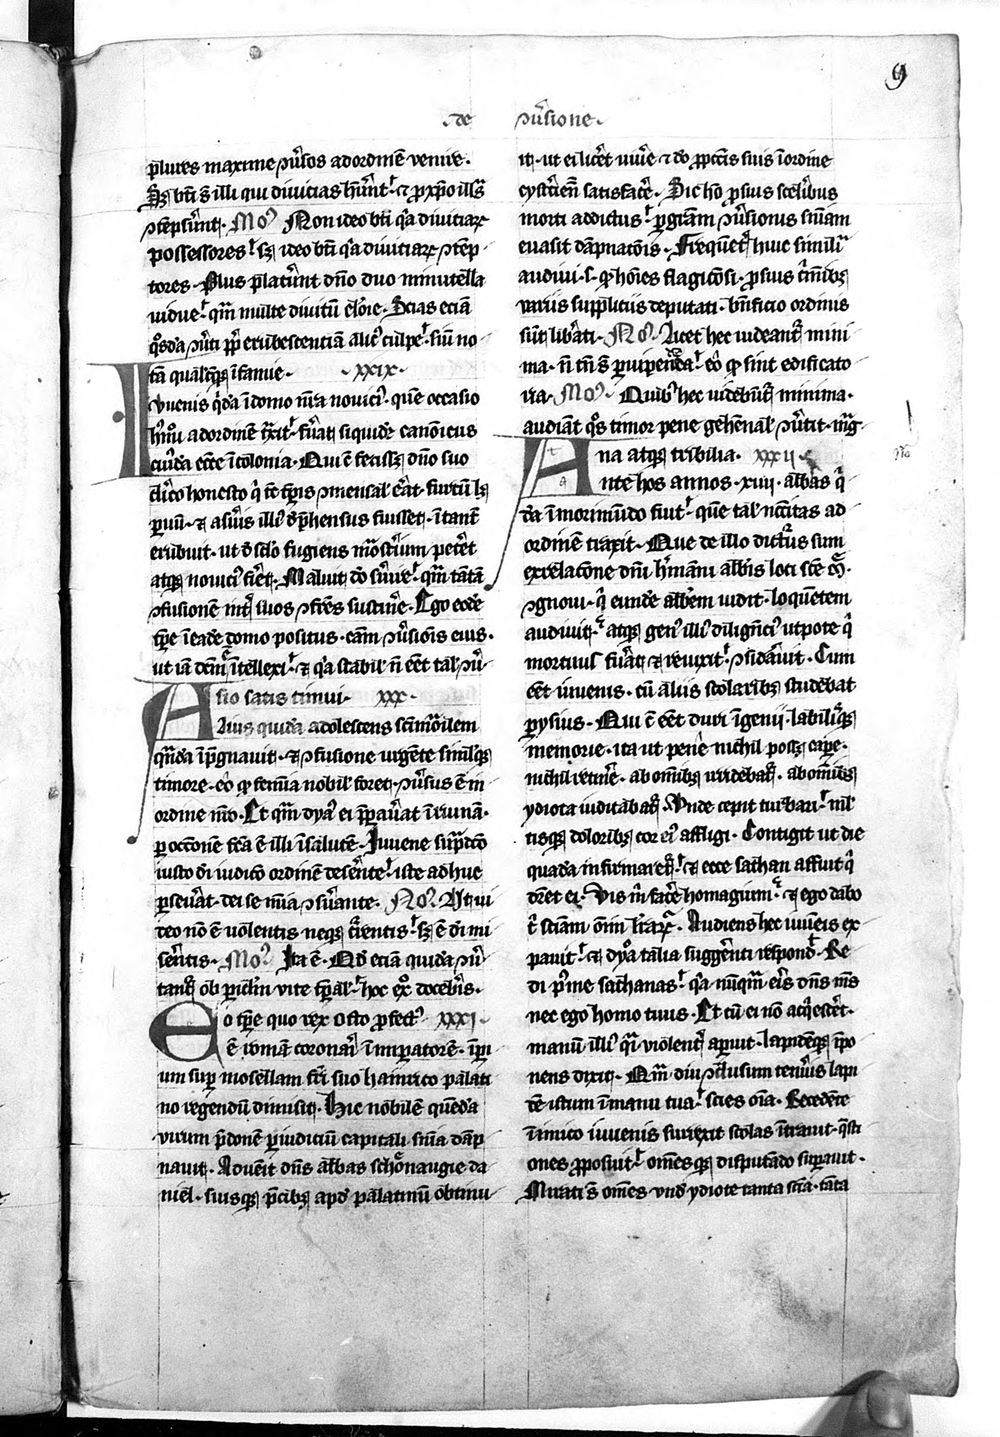 .de ↄũsione.
9
plures maxime ↄũsos ad ordinē venire.
Sȝ bt̄i s̄ illi qui divitias hr̃nt ⁊ ꝓ xp̄o illas
ↄtēpser̃nt. Mo᷒ Non ideo bt̄i qͥa divitiaꝝ
possessores sȝ ideo bt̄i qͥa divitiaꝝ ↄtēp
tores. Plus placur̃nt dn̄o duo minutella
vidue qm̄ multe divitū elōie. Scias eciā
qͦsdā ↄũti ꝓpt̄ erubescentiā alicͥ culpe siū no
tā qualēcūqꝫ ifamie. .xxix.
Iuvenis qͥdā i domo nr̄a noviciꝰ quē occasio
hmōi ad ordinē trͣxit fũat siquidē canonicus
cuiusdā ecce i colonia. Qui cū fecissȝ dn̄o suo
clico honesto qͥ sē tꝑis ↄmensal̄ erͣt furtū lȝ
ꝑvū. ⁊ a suis illiꝰ dep̄hensus fuisset. itant̄
erubuit. ut d̄ sclo fugiens mōsterium peteret
atqꝫ noviciꝰ fieret. Maluit dō suire qm̄ tātā
ↄfusionē int̄ suos ↄfr̄es sustine. Ego eodē
tꝑe i eadē domo positus. cām ↄũsiōis eius.
ut iā dcm̄ ē itellexi ⁊ qͥa stabil̄ n̄ eēt tal̄ ↄũ
sio satis timui. .xxx.
Alius quidā adolescens scimōialem
qͣndā ip̄gnavit. ⁊ ↄfusione urgēte similqꝫ
timore. eō qꝫ femīa nobil̄ foret ↄũsus ē in
ordine nr̄o. Et qm̄ dyaꝰ ei p̄ꝑarat i ruinā.
ꝑ occōnē scā ē illi i salutē. Iuvene supͣdcō
iusto di iudico ordinē deserēte iste adhuc
ꝑseũat. dei se mīa ↄseruante. No᷒ Atqui
deo nō ē volentis neqꝫ currentis sȝ ē di mi
serētis. Mo᷒ Ita ē. Qd̄ eciā quidā ↄũ
tant̄ ob ꝑiclm̄ vite tꝑal̄ hoc exͦ docebis.
Eo tꝑe quo rex Otto ꝓfectꝰ xxxi.
ē romā coronari i imperatorē. ip̄i
um super mosellam fr̄i suo hainrico palati
no regendū dimisit. Hic nobilē quēdā
virum p̄donē ꝑ iudiciū capitali sn̄ia dāp
navit. Advenit dn̄s abbas schonaugie da
niel. suisqꝫ p̄cibꝫ apd̄ palatinū obtinu
it. ut ei liceret vivere ⁊ dō ꝓ pctīs suis i ordine
cysterciēn satisfacere. Sic hō ꝓ suis sceleribus
morti addictus ꝑ grām ↄũsionus sn̄iam
evasit dāpnatōnis. Frequēt̄ huic simil̄ia
audivi. s. qꝫ hōies flagitiosi. ꝓ suis criminibꝫ
variis suppliciis deputati. bn̄ficio ordinis
sunt libr̃ati. No᷒ Licet hec videant̄ mini
ma. n̄ tn̄ s̄ parvipendēda eō qꝫ sint edificato
ria. Mo᷒ Quibꝰ hec videbūt̄ minima.
audiāt qͦs timor pene gehēnal̄ ↄũtit. mag
na atqꝫ tribilia. xxxii.
nō
Ante hos annos .xviii. abbas qͥ
dā i morimūdo fuit quē tal̄ ncc̄itas ad
ordinē traxit. Que de illo dictus sum
ex relacōne dn̄i h̓mani abb̄is loci scē M.
ↄgnovi. qͥ eundē abb̄em vidit. loquētem
audivit. atqꝫ genꝰ illiꝰ diligētiꝰ utpote qͥ
mortuus fũat ⁊ revixit ↄsidãvit. Cum
eēt iuvenis. cū aliis scolaribꝫ studebat
ꝑysius. Qui cū eēt duri igenii. labilisqꝫ
memorie. ita ut pene nichil possȝ capere.
nichil retinere. ab omibꝫ irridebat̄. ab omibꝫ
ydiota iudicabat̄. Unde cepit turbari mul
tisqꝫ doloribꝫ cor eiꝰ affligi. Contigit ut die
quadā infirmaret̄ ⁊ ecce sathan affuit qͥ
diceret ei. Vis mͥ facere homagium ⁊ ego dabo
tͥ sciam omīm lrāꝝ. Audiens hec iuvenis ex
pavit ⁊ dyaͦ talia suggerēti respond̄. Re
di post me sathanas qͥa nūqm̄ eris dn̄s ms̄
nec ego homo tuus. Et cū ei nō acqͥesceret.
manū illiꝰ qͣsi violent̄ aperuit. lapidēqꝫ ipo
nens dixit. Qm̄ diu ↄclusum tenueris lapi
dē istum i manu tua scies oīa. Recedēte
inimico iuvenis surrexit scolas itravit. qͣsti
ones ꝓposuit omēsqꝫ disputādo suꝑavit.
Mirati s̄ omēs und̄ ydiote tanta scia. tāta